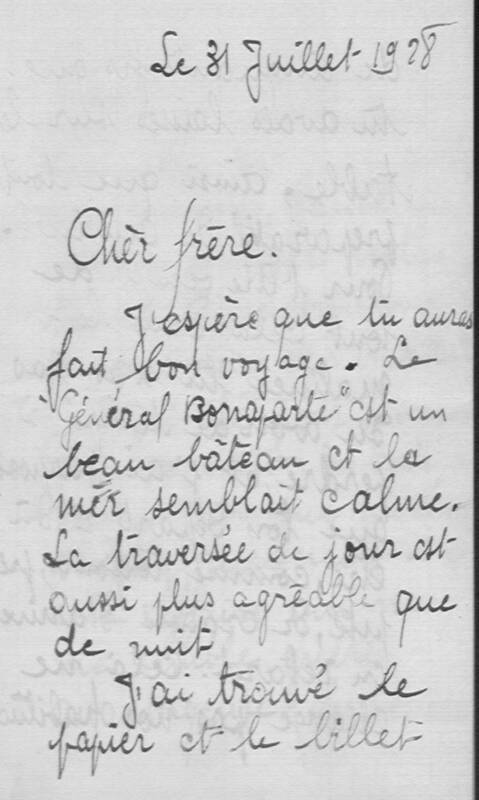 Le 31 Juillet 1928
Chèr frère.
J'espère que tu auras
fait bon voyage. Le
"Général Bonaparte" est un
beau bâteau et la
mer semblait calme.
La traversée de jour est
aussi plus agréable que
de nuit
J'ai trouvé le
papier et le billet